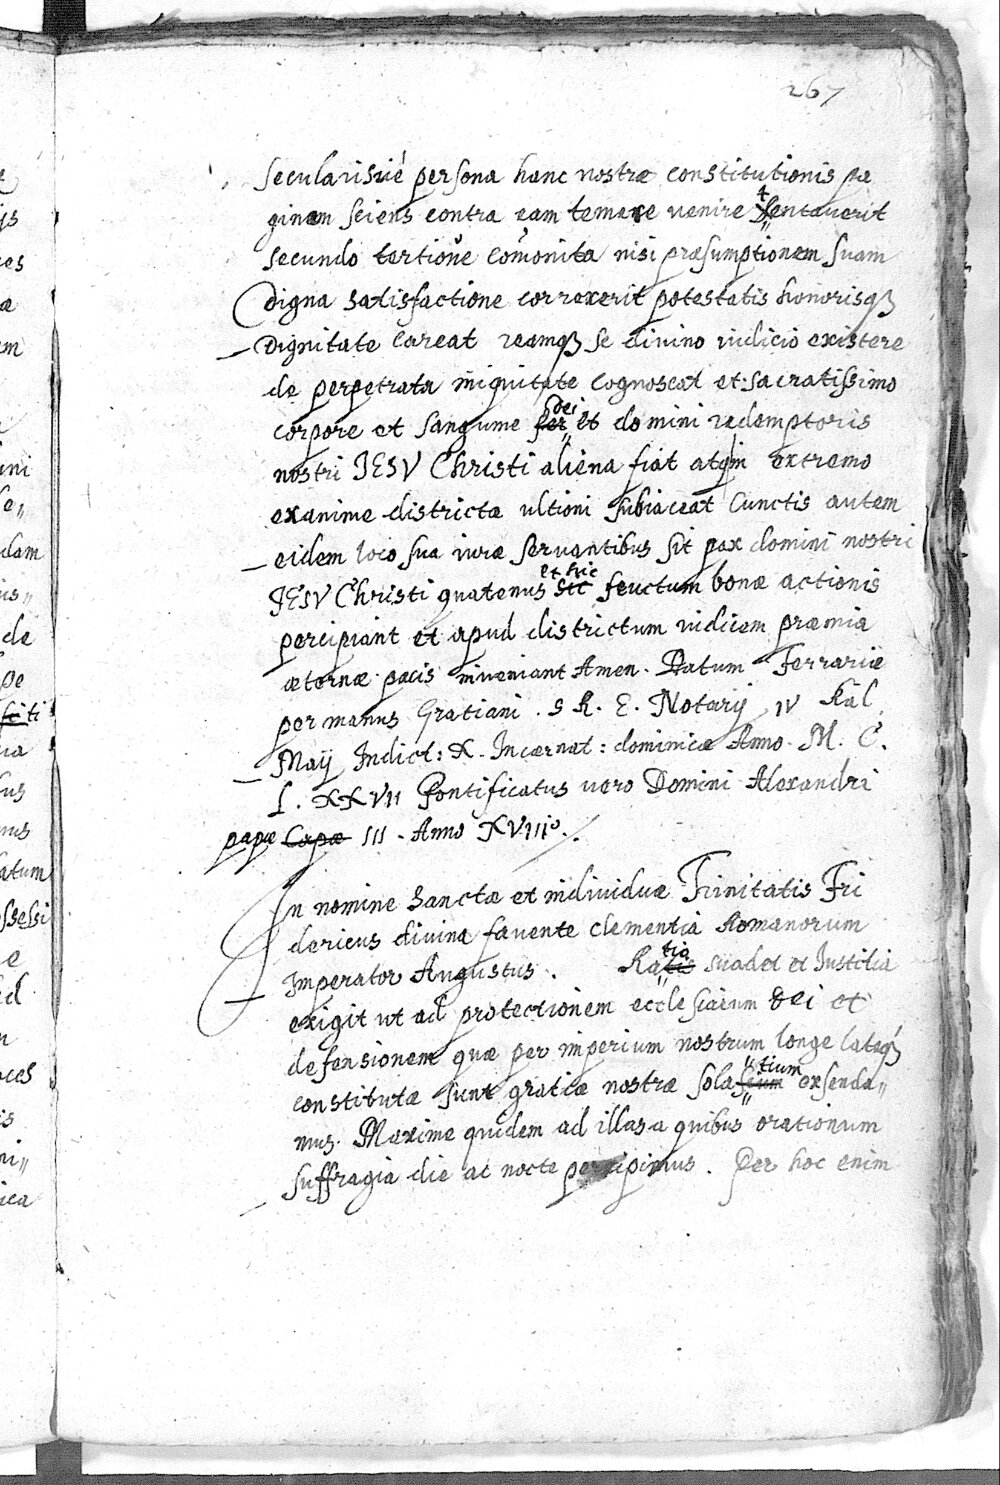 267
secularisvé persona hanc nostræ constitutionis pa
ginam sciens contra eam temere venire tentaverit
secundo tertioúe comonita nisi præsumptionem suam
digna satisfactione correxerit potestatis honorisqȝ
Dignitate careat reamqȝ se divino iudicio existere
de perpetrata iniquitate cognoscat et sacratissimo
corpore et sanguine dei et domini redemptoris
nostri JESV Christi aliena fiat atqȝ in extremo
examine districtæ ultioni subiaceat Cunctis autem
eidem loco sua iura servantibus sit pax domini nostri
JESV Christi quatenus et hic fructum bonæ actionis
percipiant et apud districtum iudicem præmia
æternæ pacis inveniant Amen. Datum Ferrariæ
per manus Gratiani . S R. E. Notarij IV Kal
Maij Indict: X. Incarnat: dominicæ Anno. M. C.
L. XXVII Pontificatus vero Domini Alexandri
papæ Capæ III. Anno XVIIIo.
In nomine Sanctæ et individuæ Trinitatis Fri
dericus divina favente clementia Romanorum
Imperator Augustus. Ratio suadet et Justitia
exigit ut ad protectionem ecclesiarum dei et
defensionem quæ per imperium nostrum longe lateqȝ
constitutæ sunt gratiæ nostræ solatium exsenda„
mus. Maxime quidem ad illas a quibus orationum
suffragia die ac nocte percipimus. Per hoc enim